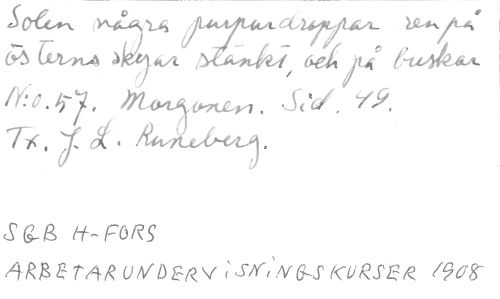 Solen några purpurdroppar ren på
österns skyar stänkt, och på buskar
N:o. 57. Morgonen. Sid. 49.
Tx. J. L. Runeberg.
SGB H-FORS
ARBETARUNDERVISNINGSKURSER 1908